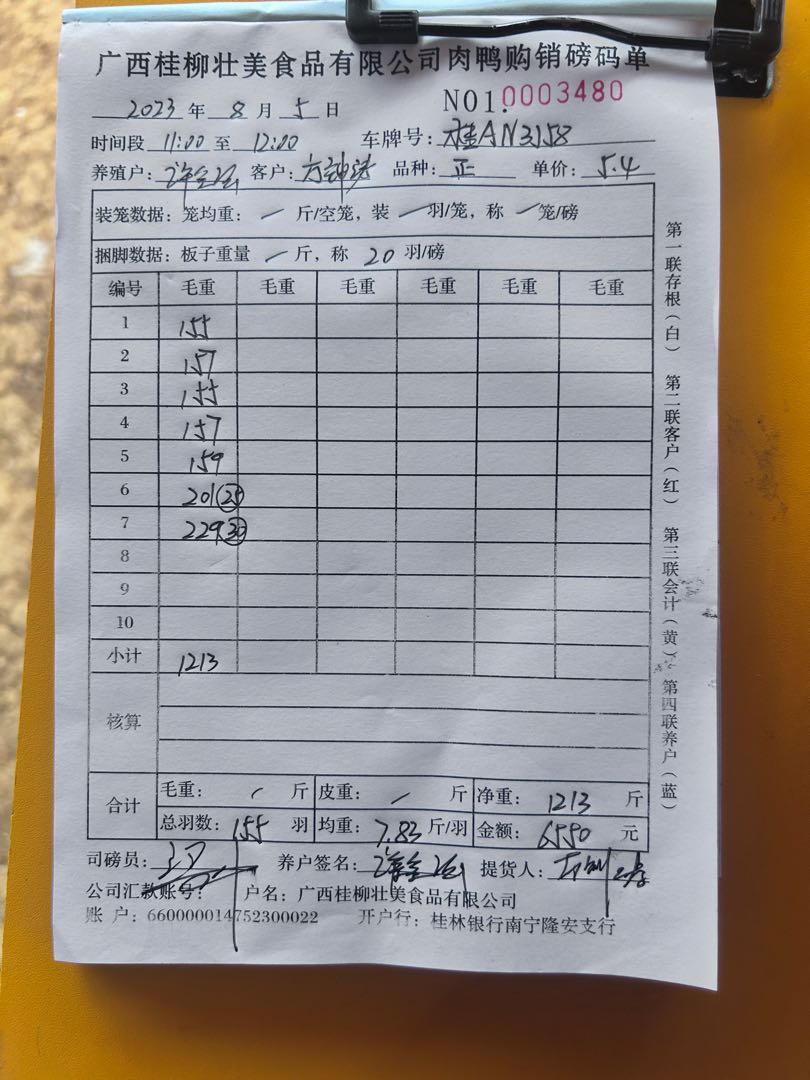 广西桂柳壮美食品有限公司肉鸭购销磅码单
2023 年 8 月 5 日 NO1.0003480
时间段 11:00 至 12:00 车牌号: 桂AN3158
养殖户: 客户: 品种: 正 单价: 5.4
装笼数据: 笼均重: / 斤/空笼, 装 / 羽/笼, 称 / 笼/磅
捆脚数据: 板子重量 / 斤, 称 20 羽/磅
编号 毛重 毛重 毛重 毛重 毛重 毛重
1 155
2 157
3 155
4 157
5 159
6 201 25
7 229 30
8
9
10
小计 1213
核算
合计 毛重: / 斤 皮重: / 斤 净重: 1213 斤
总羽数: 155 羽 均重: 7.83 斤/羽 金额: 6550 元
司磅员: 养户签名: 提货人:
公司汇款账号: 户名: 广西桂柳壮美食品有限公司
账 户: 660000014752300022 开户行: 桂林银行南宁隆安支行
第一联存根(白) 第二联客户(红) 第三联会计(黄) 第四联养户(蓝)